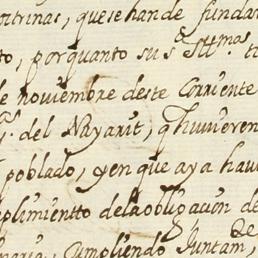 ctrinas, que se han de fundar
to, por quanto sus Ill.mas
de noviembre deste corriente
del Nayarit, q huvieren
poblado, y en que aya hav
plimientto dela obligacion de
Cumpliendo Juntam,